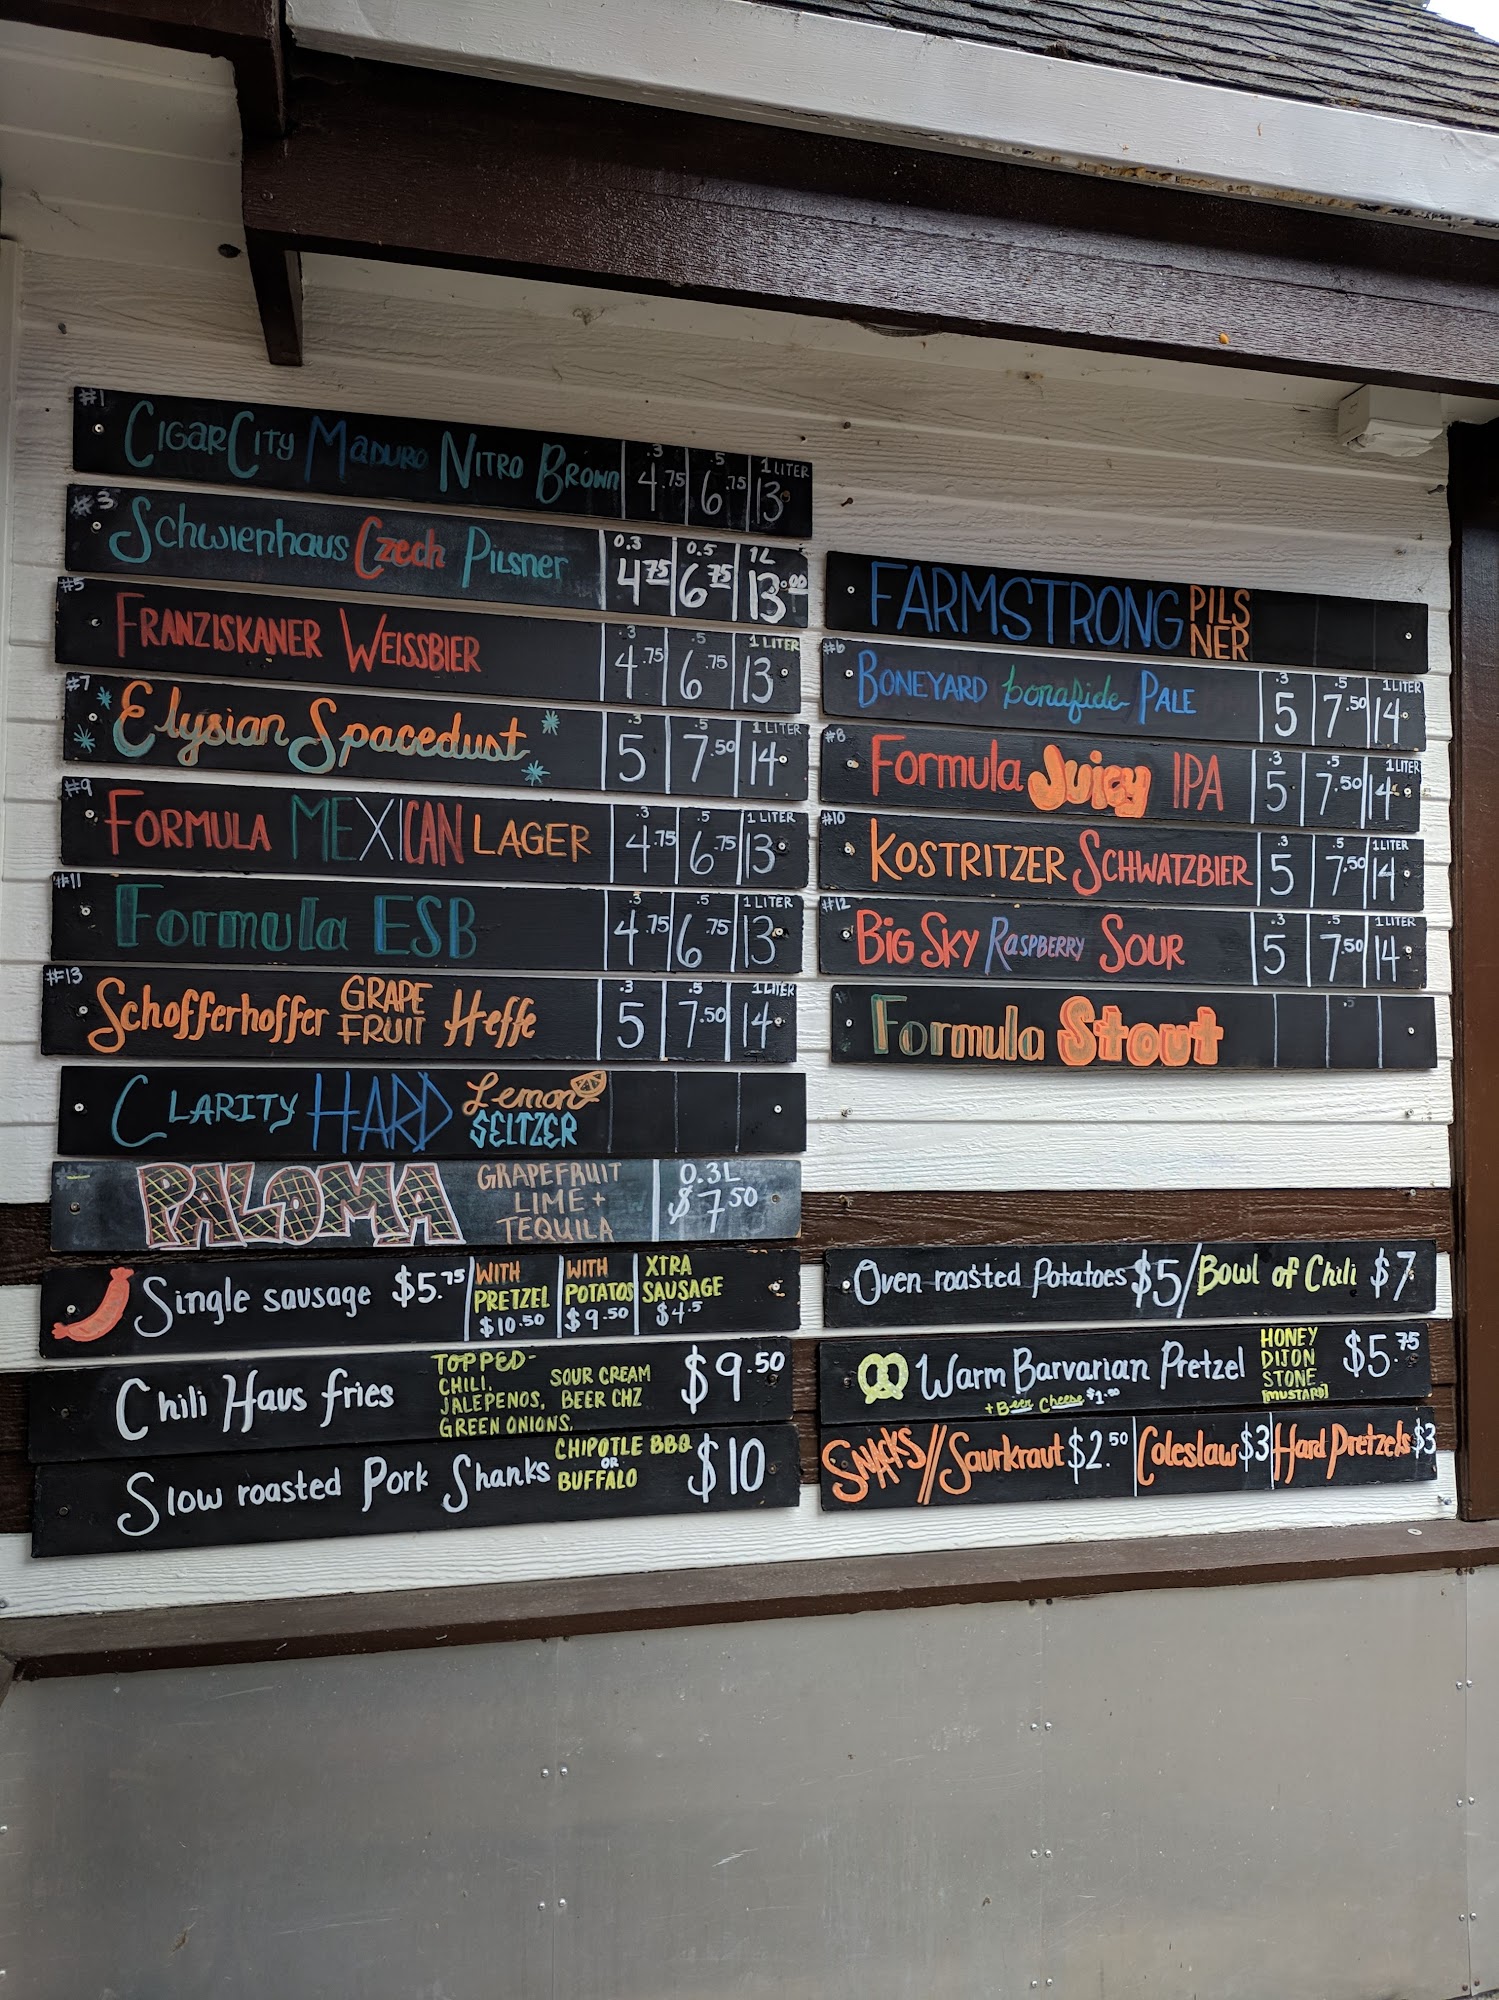 #1 CIGAR CITY MADURO NITRO BROWN .3 4.75 6.75 1 LITER 13
#3 Schwienhaus Czech Pilsner 0.3 4.75 0.5 6.75 1L 13.00
#5 FRANZISKANER WEISSBIER .3 4.75 .5 6.75 1 LITER 13
#7 Elysian Spacedust .3 5 .5 7.50 1 LITER 14
#9 FORMULA MEXICAN LAGER .3 4.75 .5 6.75 1 LITER 13
#11 Formula ESB .3 4.75 .5 6.75 1 LITER 13
#13 Schofferhoffer GRAPE FRUIT Heffe .3 5 .5 7.50 1 LITER 14
CLARITY HARD Lemon SELTZER
PALOMA GRAPEFRUIT LIME + TEQUILA 0.3L $7.50
FARMSTRONG PILS NER
#6 BONEYARD bonafide PALE .3 5 .5 7.50 1 LITER 14
#8 Formula Juicy IPA .3 5 .5 7.50 1 LITER 14
#10 KOSTRITZER SCHWATZBIER .3 5 .5 7.50 1 LITER 14
#12 BIG SKY RASPBERRY SOUR .3 5 .5 7.50 1 LITER 14
Formula Stout .5
Single sausage $5.75 WITH PRETZEL $10.50 WITH POTATOS $9.50 XTRA SAUSAGE $4.5
Chili Haus fries TOPPED- CHILI, JALEPENOS, GREEN ONIONS, SOUR CREAM BEER CHZ $9.50
Slow roasted Pork Shanks CHIPOTLE BBQ OR BUFFALO $10
Oven roasted Potatoes $5 / Bowl of Chili $7
Warm Barvarian Pretzel + Beer Cheese $1.00 HONEY DIJON STONE [MUSTARD] $5.75
SNACKS // Saurkraut $2.50 Coleslaw $3 Hard Pretzels $3